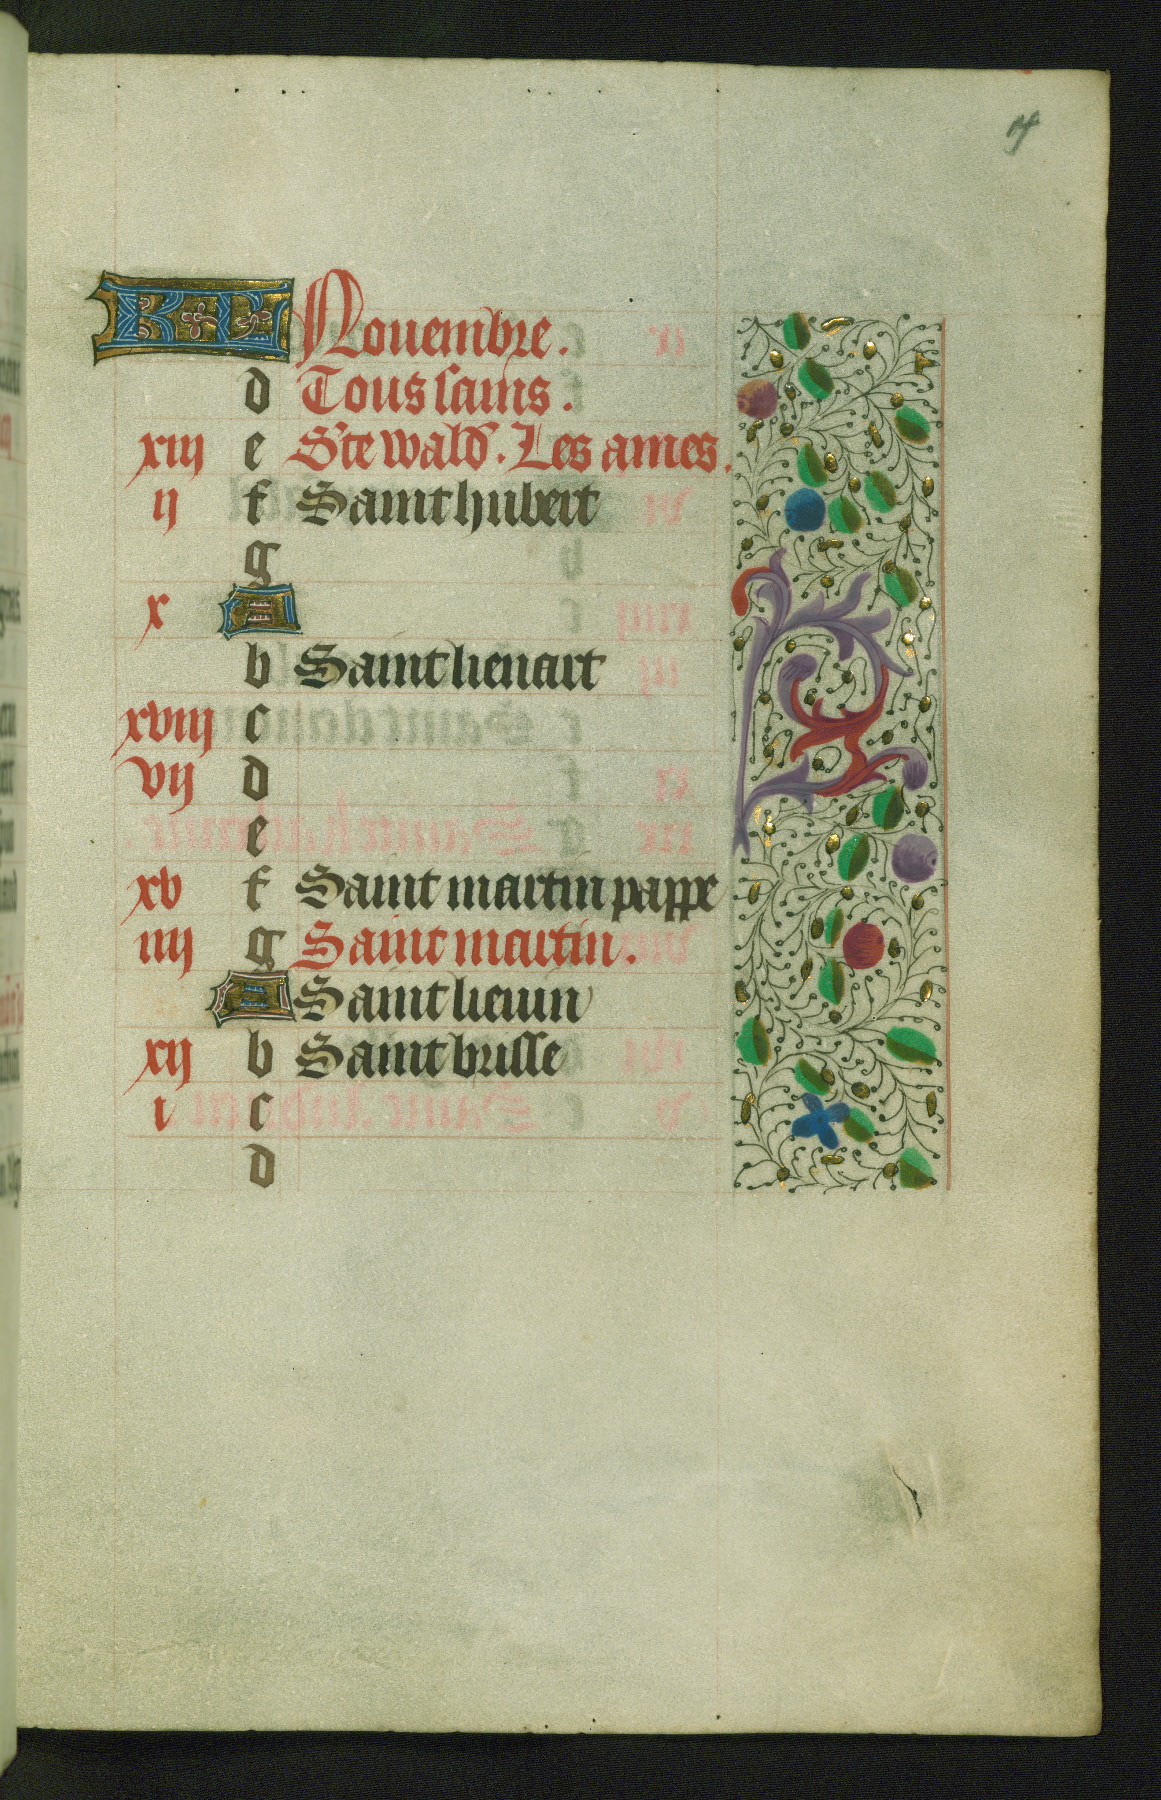 KL Nouembre.
d Tous sains.
xiii e Ste wald. Les ames.
ii f Saint hubert
g
x A
b Saint lienart
xviii c
vii d
e
xv f Saint martin pappe
iiii g Saint martin.
A Saint lieuin
xii b Saint brisse
i c
d